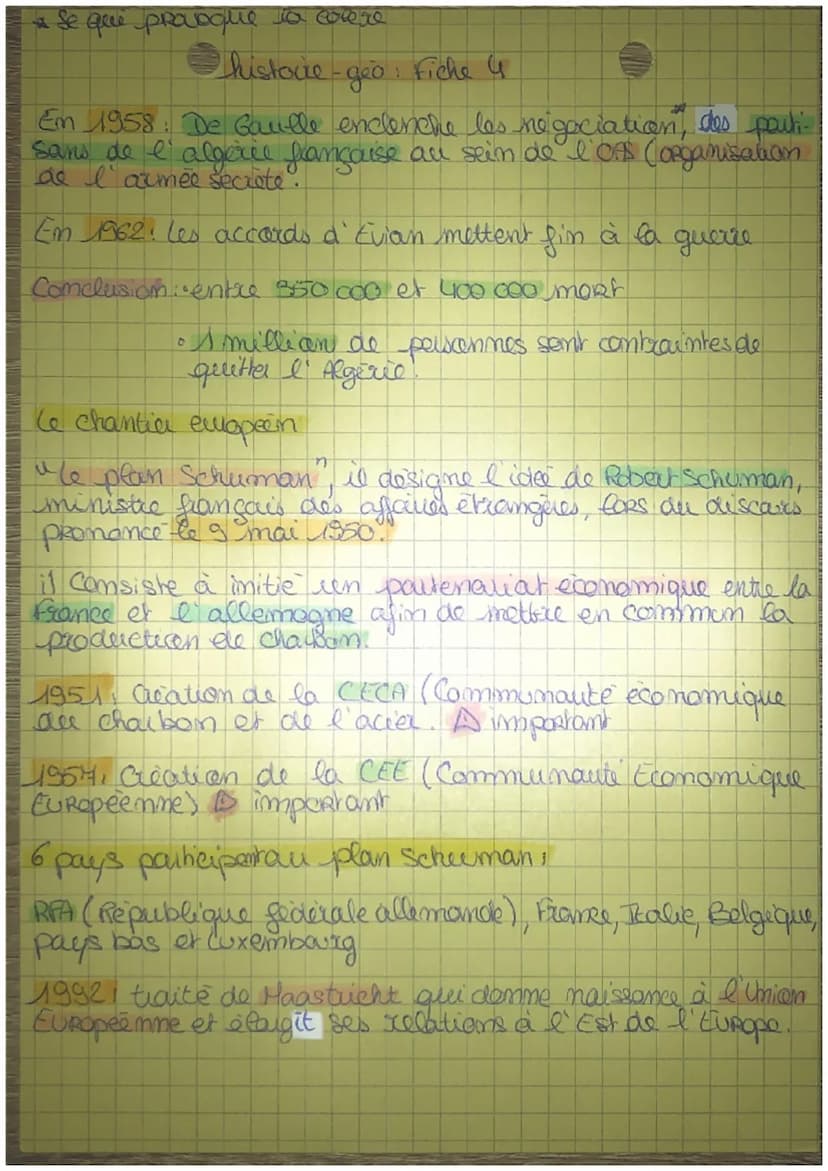 * Se qui provoque la colère
histoire-géo : Fiche 4
En 1958 : De Gaulle enclenche les négociation*, des parti-
sans de l'algérie française au sein de l'OAS (organisation
de l'armée secrète.
En 1962 : Les accords d'Evian mettent fin à la guerre
Conclusion : entre 350 000 et 400 000 mort
• 1 million de personnes sont contraintes de
quitter l'Algérie.
Le chantier européen
"Le plan Schuman", il désigne l'idée de Robert Schuman,
ministre français des affaires étrangères, lors du discours
prononcé le 9 mai 1950.
il Consiste à initié un partenariat économique entre la
France et l'allemagne afin de mettre en commun la
production de charbon.
1951 : Création de la CECA (Communauté économique
du charbon et de l'acier. ⚠ important
1957 : Création de la CEE (Communauté Economique
Européenne) ⚠ important
6 pays participent au plan Schuman :
RFA (République fédérale allemande), France, Italie, Belgique,
pays bas et Luxembourg
1992 : traité de Maastricht qui donne naissance à l'Union
Européenne et élargit ses relations à l'Est de l'Europe.